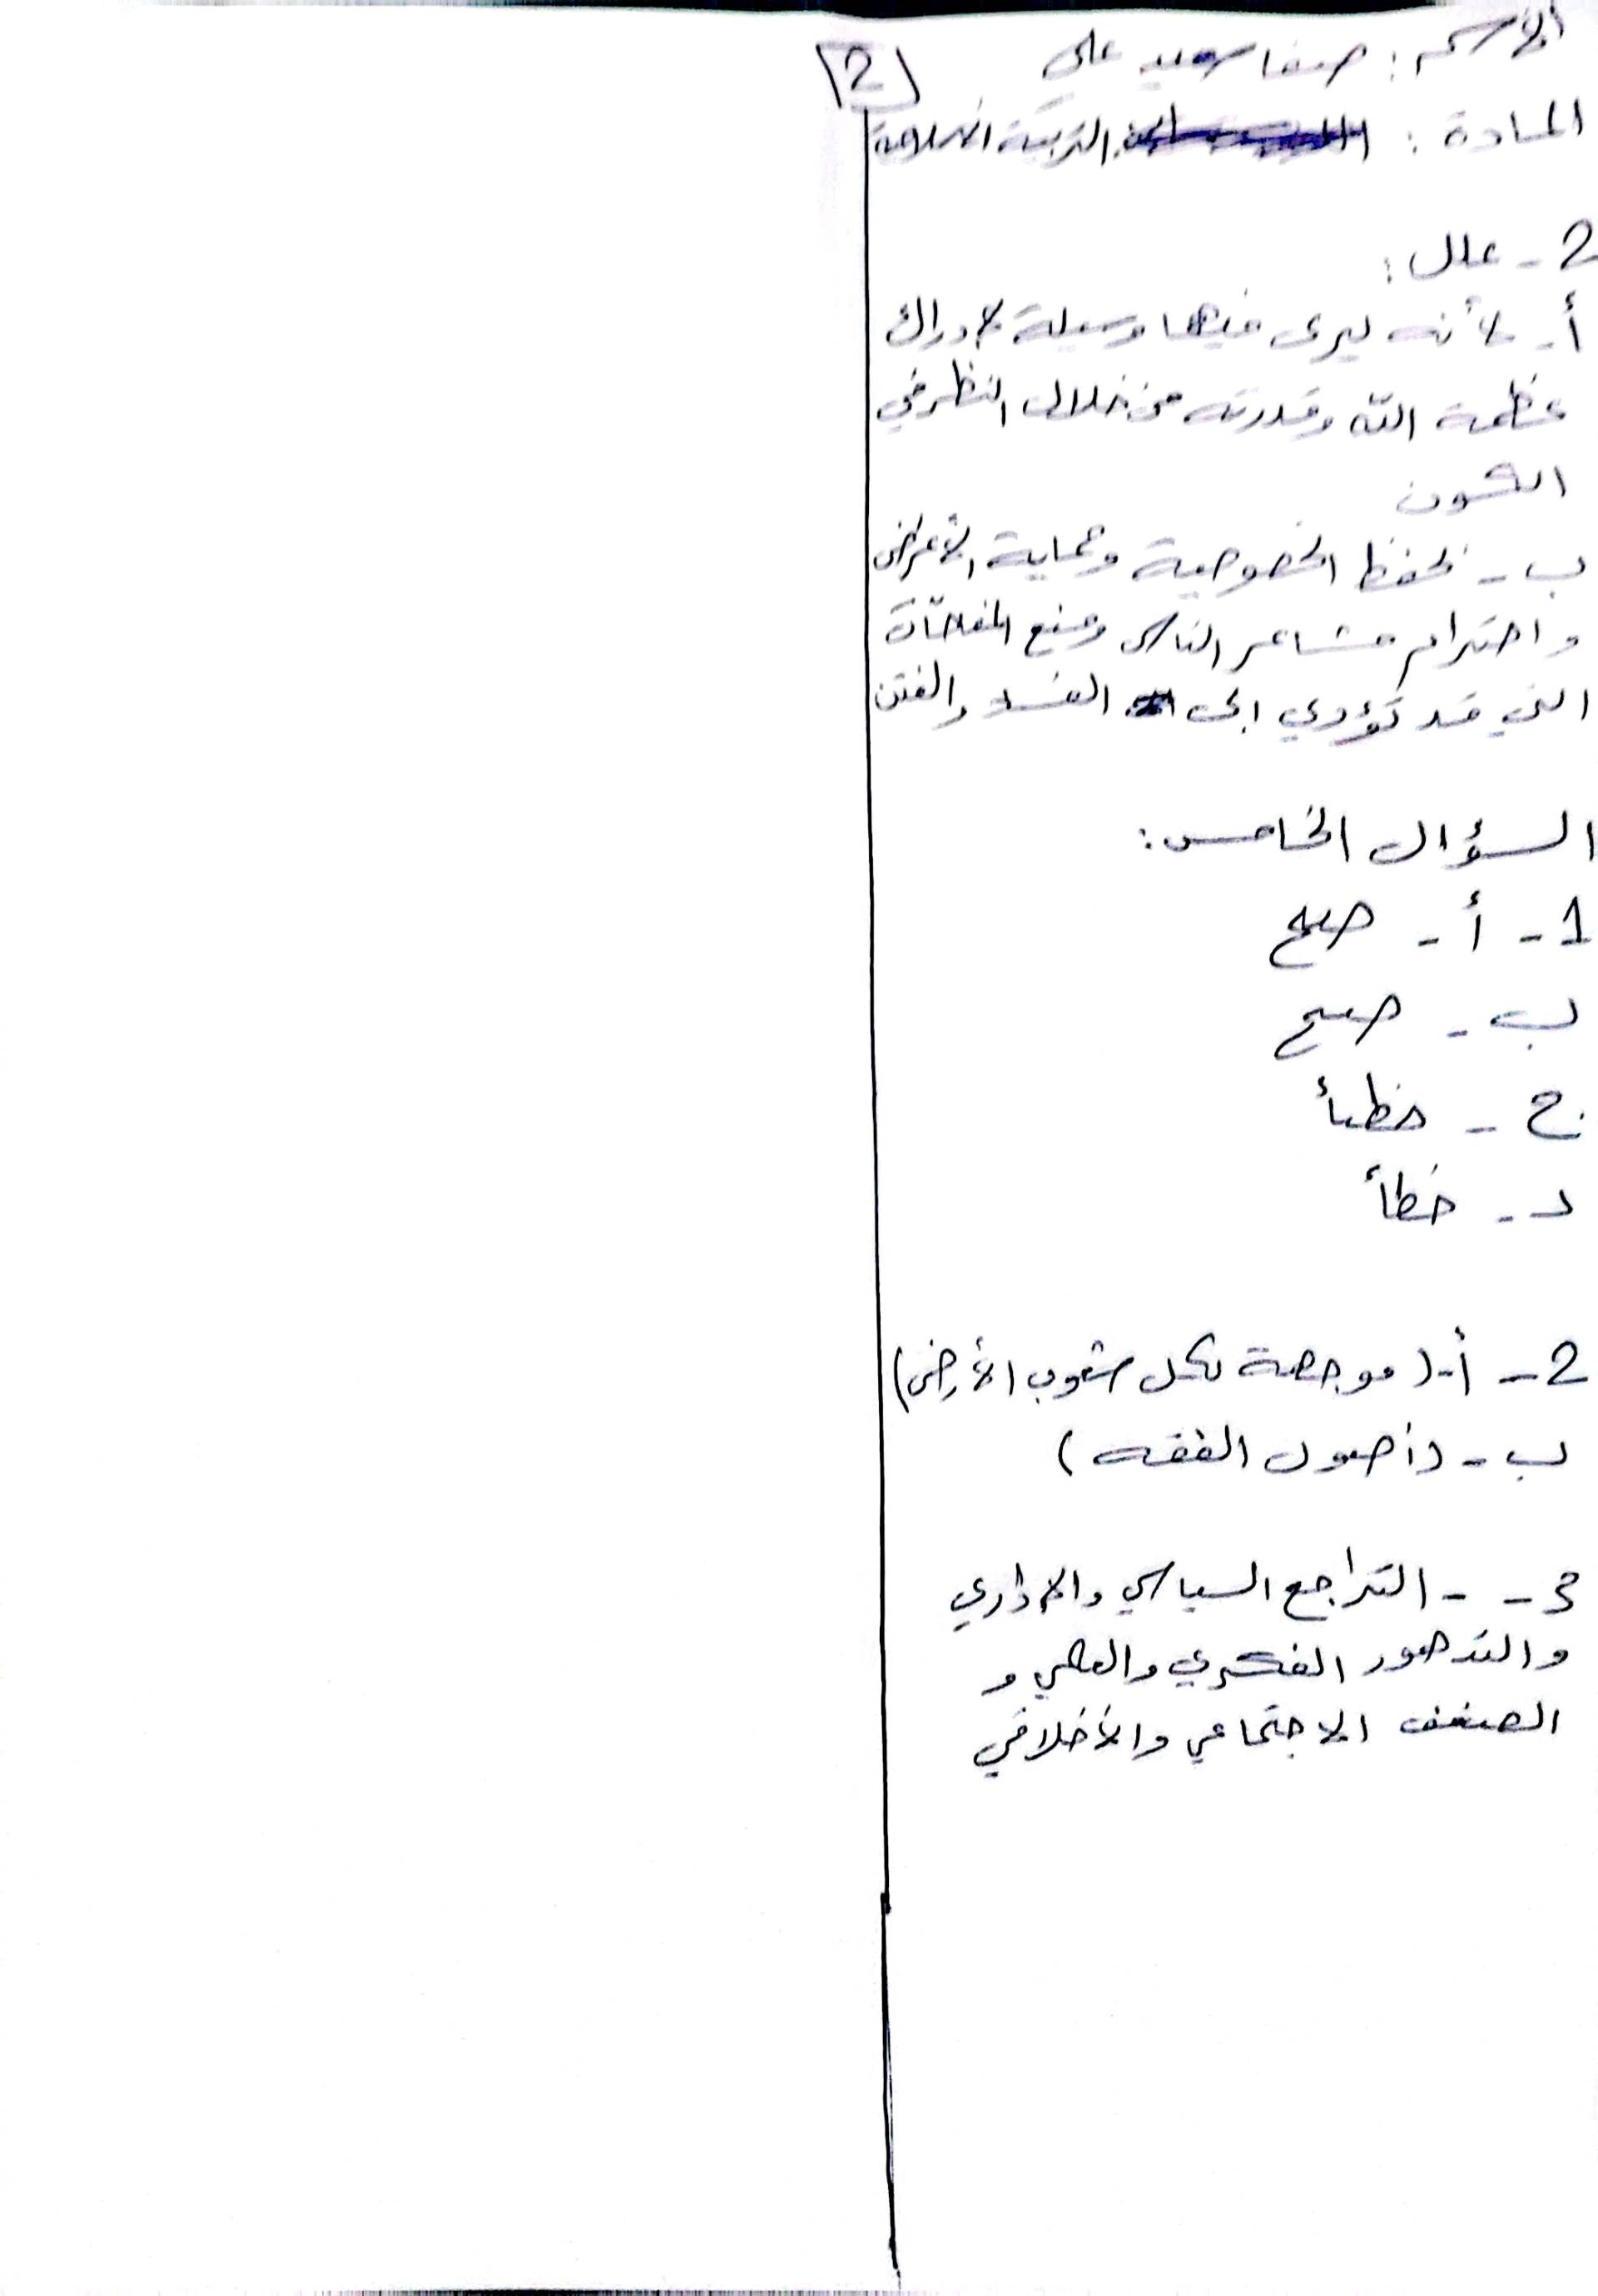 الاسم: صفا سعيد علي
2
المادة: التربية الاسلامية
2 - علل:
أ - لأنه يرى فيها وسيلة لادراك
عظمة الله وقدرته من خلال النظر في
الكون
ب - لحفظ الخصوصية وحماية الأعراض
واحترام مشاعر الناس ومنع المفاجآت
التي قد تؤدي الى والفتن
السؤال الخامس:
1 - أ - صح
ب - صح
ج - خطأ
د - خطأ
2 - أ - (موجهة لكل شعوب الأرض)
ب - (أصول الفقه)
3 - - التراجع السياسي والاداري
والتدهور الفكري والعلمي و
الضعف الاجتماعي والأخلاقي